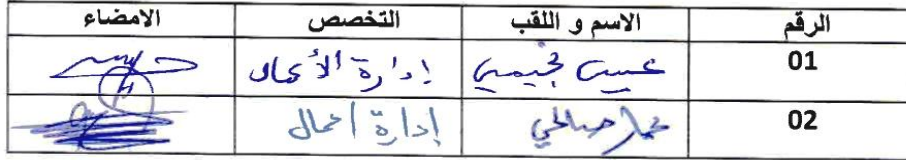 الرقم الاسم و اللقب التخصص الامضاء
01 إدارة الأعمال
02 عمار صالحي إدارة أعمال